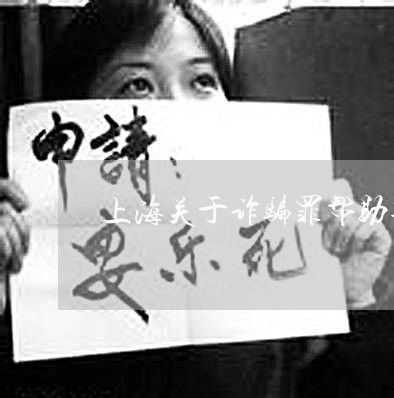 申請:
上海关于诈骗罪帮助
安乐死